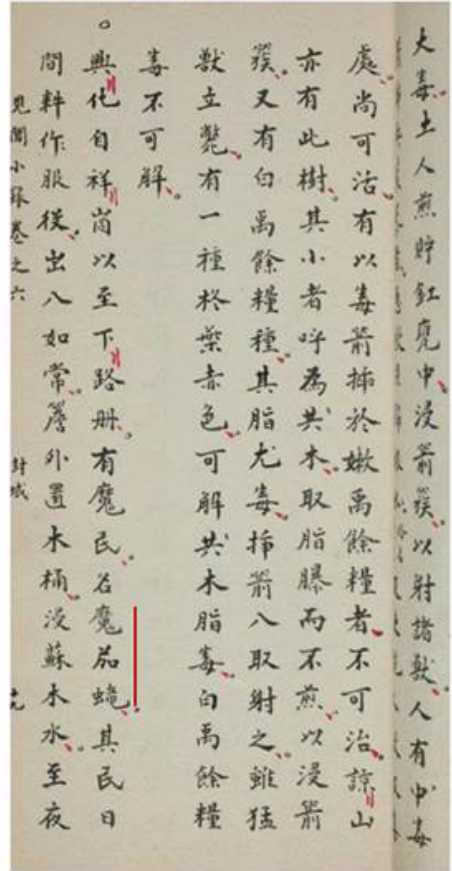 大毒土人煎貯缸甕中浸箭簇以射諸獸人有中毒
處尚可活有以毒箭揷於嫩禹餘糧者不可治諒山
亦有此樹其小者呼為共木取脂曝而不煎以浸箭
簇又有白禹餘糧種其脂尤毒揷箭入取射之雖猛
獸立斃有一種柊葉赤色可解共木脂毒白禹餘糧
毒不可解
○興化自祥崗以至下路册有魔民名魔茄其民日
間耕作服從出入如常簷外置木桶浸蘇木水至夜
見聞小錄卷之六 封域 十九